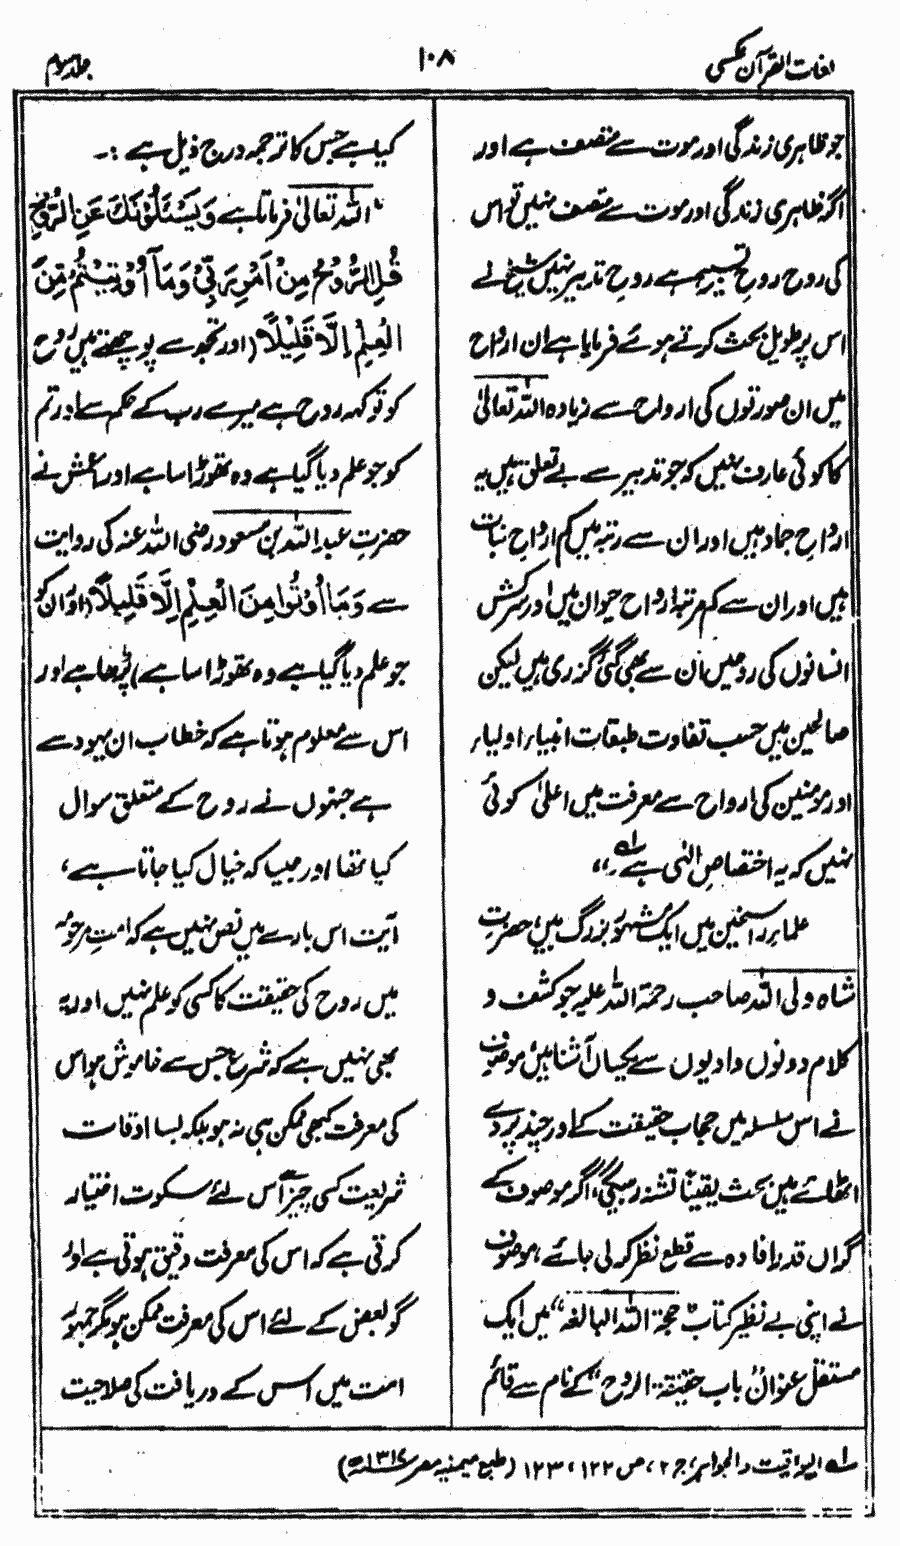 لغات القرآن عکسی
۱۰۸
جلد سوم
جو ظاہری زندگی اور موت سے متصف ہے اور
اگر ظاہری زندگی اور موت سے متصف نہیں تو اس
کی روح روحِ تسییر ہے روحِ تدبیر نہیں شیخ نے
اس پر طویل بحث کرتے ہوئے فرمایا ہے ان ارواح
میں ان صورتوں کی ارواح سے زیادہ اللہ تعالیٰ
کا کوئی عارف نہیں کہ جو تدبیر سے بے تعلق ہیں یہ
ارواحِ جماد ہیں اور ان سے رتبہ میں کم ارواحِ نبات
ہیں اور ان سے کم مرتبہ ارواحِ حیوان ہیں اور سرکش
انسانوں کی روحیں ان سے بھی گئی گزری ہیں لیکن
صالحین میں حسب تفاوت طبقات انبیاء اولیاء
اور مومنین کی ارواح سے معرفت میں اعلیٰ کوئی
نہیں کہ یہ اختصاصِ الٰہی ہے لہ ،،
علماء راسخین میں ایک مشہور بزرگ ہیں، حضرت
شاہ ولی اللہ صاحب رحمۃ اللہ علیہ جو کشف و
کلام دونوں وادیوں سے یکساں آشنا ہیں موصوف
نے اس سلسلہ میں حجاب حقیقت کے اور چند پردے
اٹھائے ہیں بحث یقیناً تشنہ رہیگی، اگر موصوف کے
گراں قدر افادہ سے قطع نظر کر لی جائے، موصوف
نے اپنی بے نظیر کتاب "حجۃ اللہ البالغہ" میں ایک
مستقل عنوان "باب حقیقۃ الروح" کے نام سے قائم
کیا ہے جس کا ترجمہ درج ذیل ہے :۔
"اللہ تعالیٰ فرماتا ہے وَيَسْئَلُوْنَكَ عَنِ الرُّوْحِ
قُلِ الرُّوْحُ مِنْ اَمْرِ رَبِّىْ وَمَا اُوْتِيْتُمْ مِّنَ
الْعِلْمِ اِلَّا قَلِيْلًا (اور تجھ سے پوچھتے ہیں روح
کو تو کہہ روح ہے میرے رب کے حکم سے اور تم
کو جو علم دیا گیا ہے وہ تھوڑا سا ہے اور اعمش نے
حضرت عبد اللہ بن مسعود رضی اللہ عنہ کی روایت
سے وَمَا اُوْتُوا مِنَ الْعِلْمِ اِلَّا قَلِيلًا (اور ان کو
جو علم دیا گیا ہے وہ تھوڑا سا ہے) پڑھا ہے اور
اس سے معلوم ہوتا ہے کہ خطاب ان یہود سے
ہے جنہوں نے روح کے متعلق سوال
کیا تھا اور جیسا کہ خیال کیا جاتا ہے،
آیت اس بارے میں نص نہیں ہے کہ امتِ مرحومہ
میں روح کی حقیقت کا کسی کو علم نہیں اور یہ
بھی نہیں ہے کہ شرع جس سے خاموش ہو اس
کی معرفت کبھی ممکن ہی نہ ہو بلکہ بسا اوقات
شریعت کسی چیز سے اس لئے سکوت اختیار
کرتی ہے کہ اس کی معرفت دقیق ہوتی ہے اور
گو بعض کے لئے اس کی معرفت ممکن ہو مگر جمہور
امت میں اس کے دریافت کی صلاحیت
لہ الیواقیت والجواہر، ج ۲، ص ۱۲۲، ۱۲۳ (طبع میمنیہ مصر ۱۳۱۷ھ)